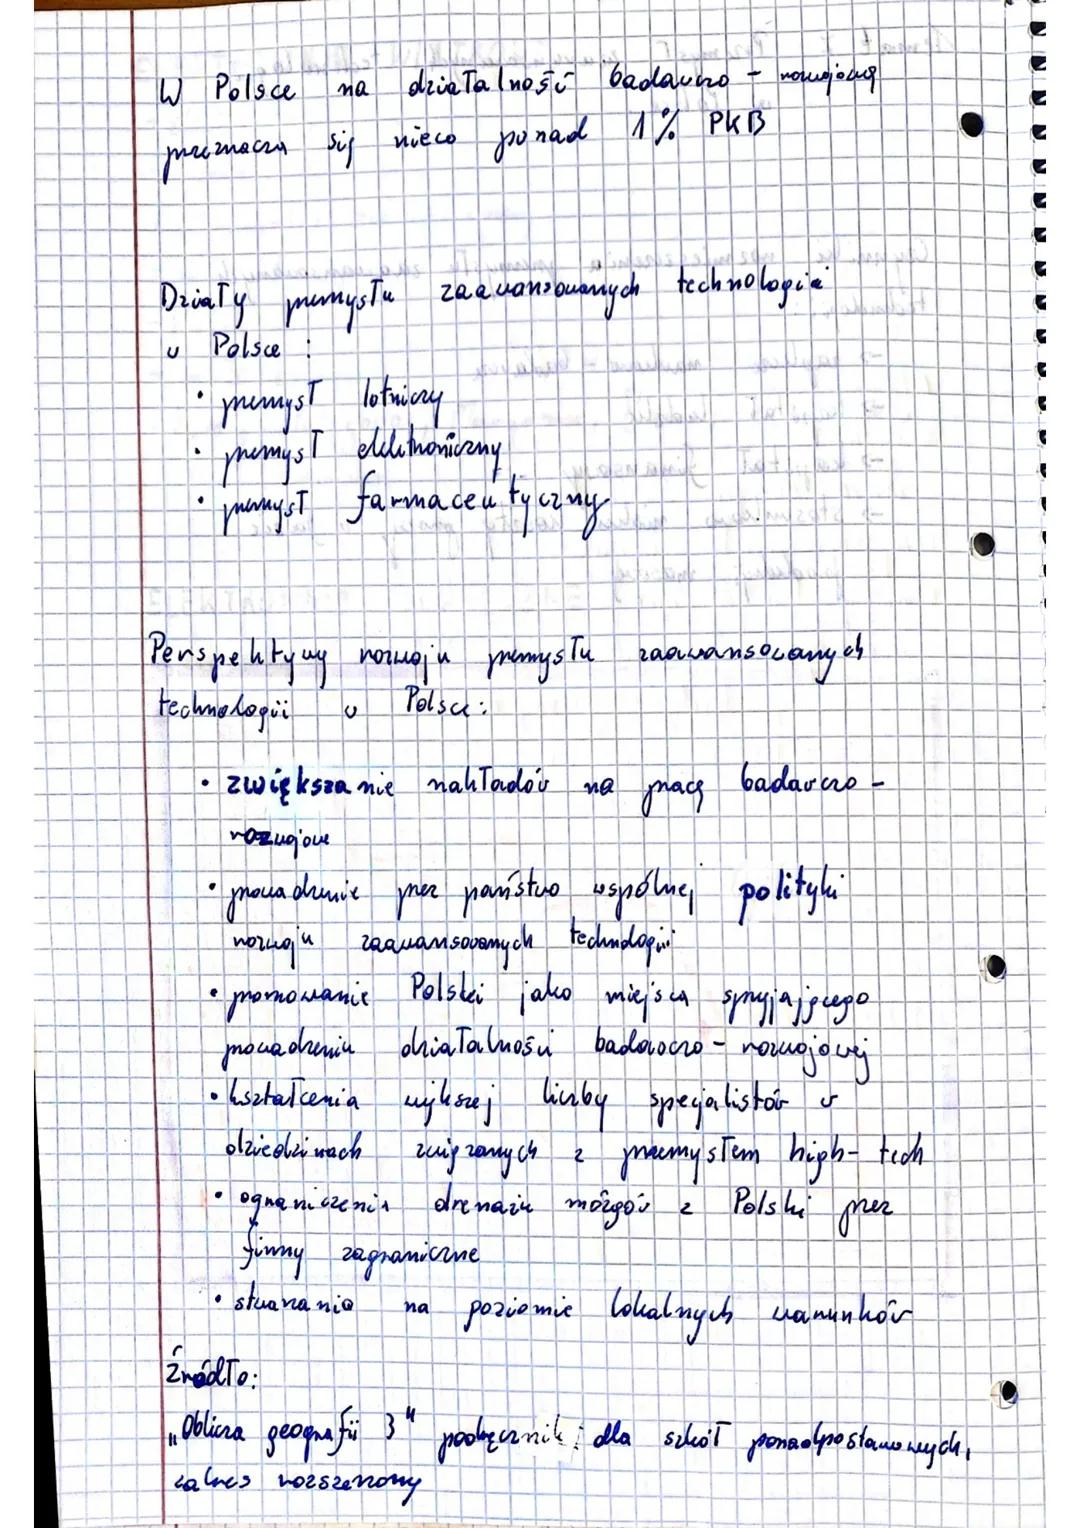 W Polsce na działalność badawczo - rozwojową
przeznacza się nieco ponad 1% PKB
Działy przemysłu zaawansowanych technologii
w Polsce :
• przemysł lotniczy
• przemysł elektroniczny
• przemysł farmaceutyczny
Perspektywy rozwoju przemysłu zaawansowanych
technologii w Polsce:
• zwiększanie nakładów na pracę badawczo -
rozwojowe
• prowadzenie przez państwo wspólnej polityki
rozwoju zaawansowanych technologii
• promowanie Polski jako miejsca sprzyjającego
prowadzeniu działalności badawczo - rozwojowej
• kształcenia większej liczby specjalistów w
dziedzinach związanych z przemysłem high-tech
• ograniczenia drenażu mózgów z Polski przez
firmy zagraniczne
• stwarzania na poziomie lokalnych warunków
Źródło:
„Oblicza geografii 3" podręcznik dla szkół ponadpostawowych,
zakres rozszerzony